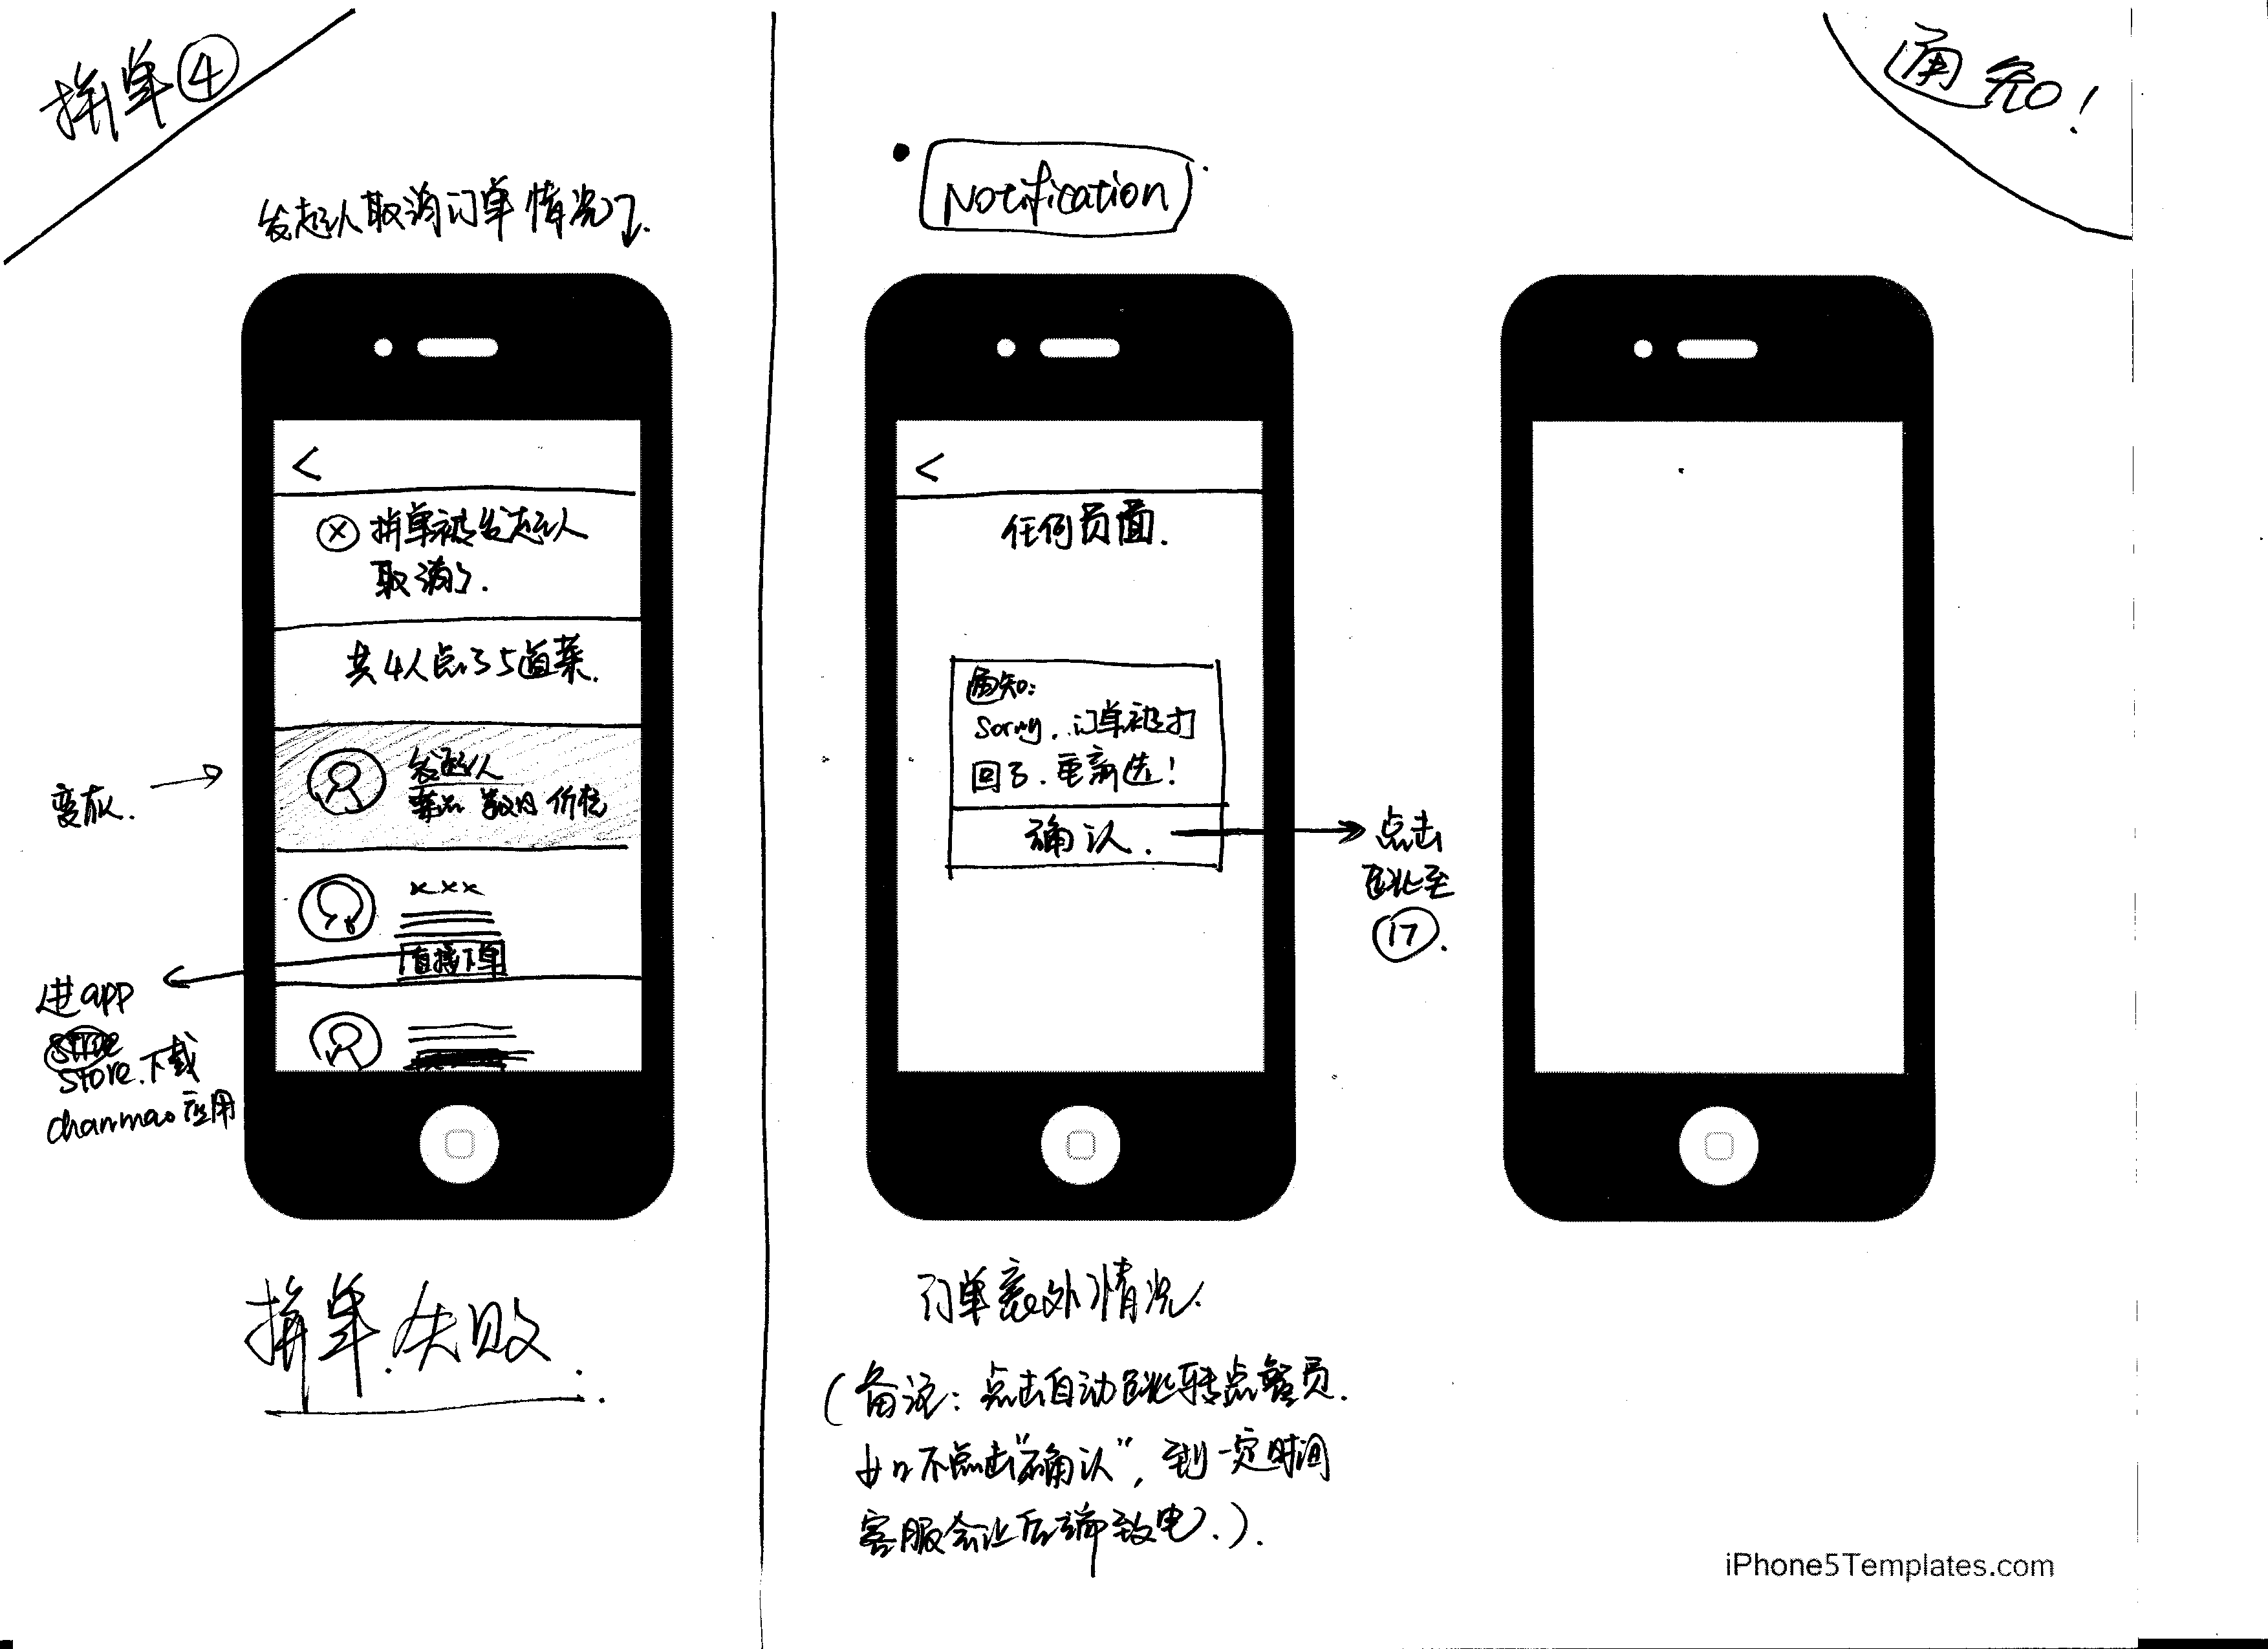 拼单④
发起人取消订单情况下.
<
ⓧ 拼单被发起人
取消了.
共4人点了5道菜.
发起人
菜品 数目 价格
变灰.
×××
直接下单
进app
store.下载
chanmao应用
拼单.失败.
通知!
Notification
<
任何页面.
通知:
Sorry.订单被打
回了.重新选!
确认.
点击
跳至
⑰.
订单意外情况.
(备注: 点击自动跳转点餐页.
如不点击"确认", 到一定时间
客服会让后端致电.).
iPhone5Templates.com